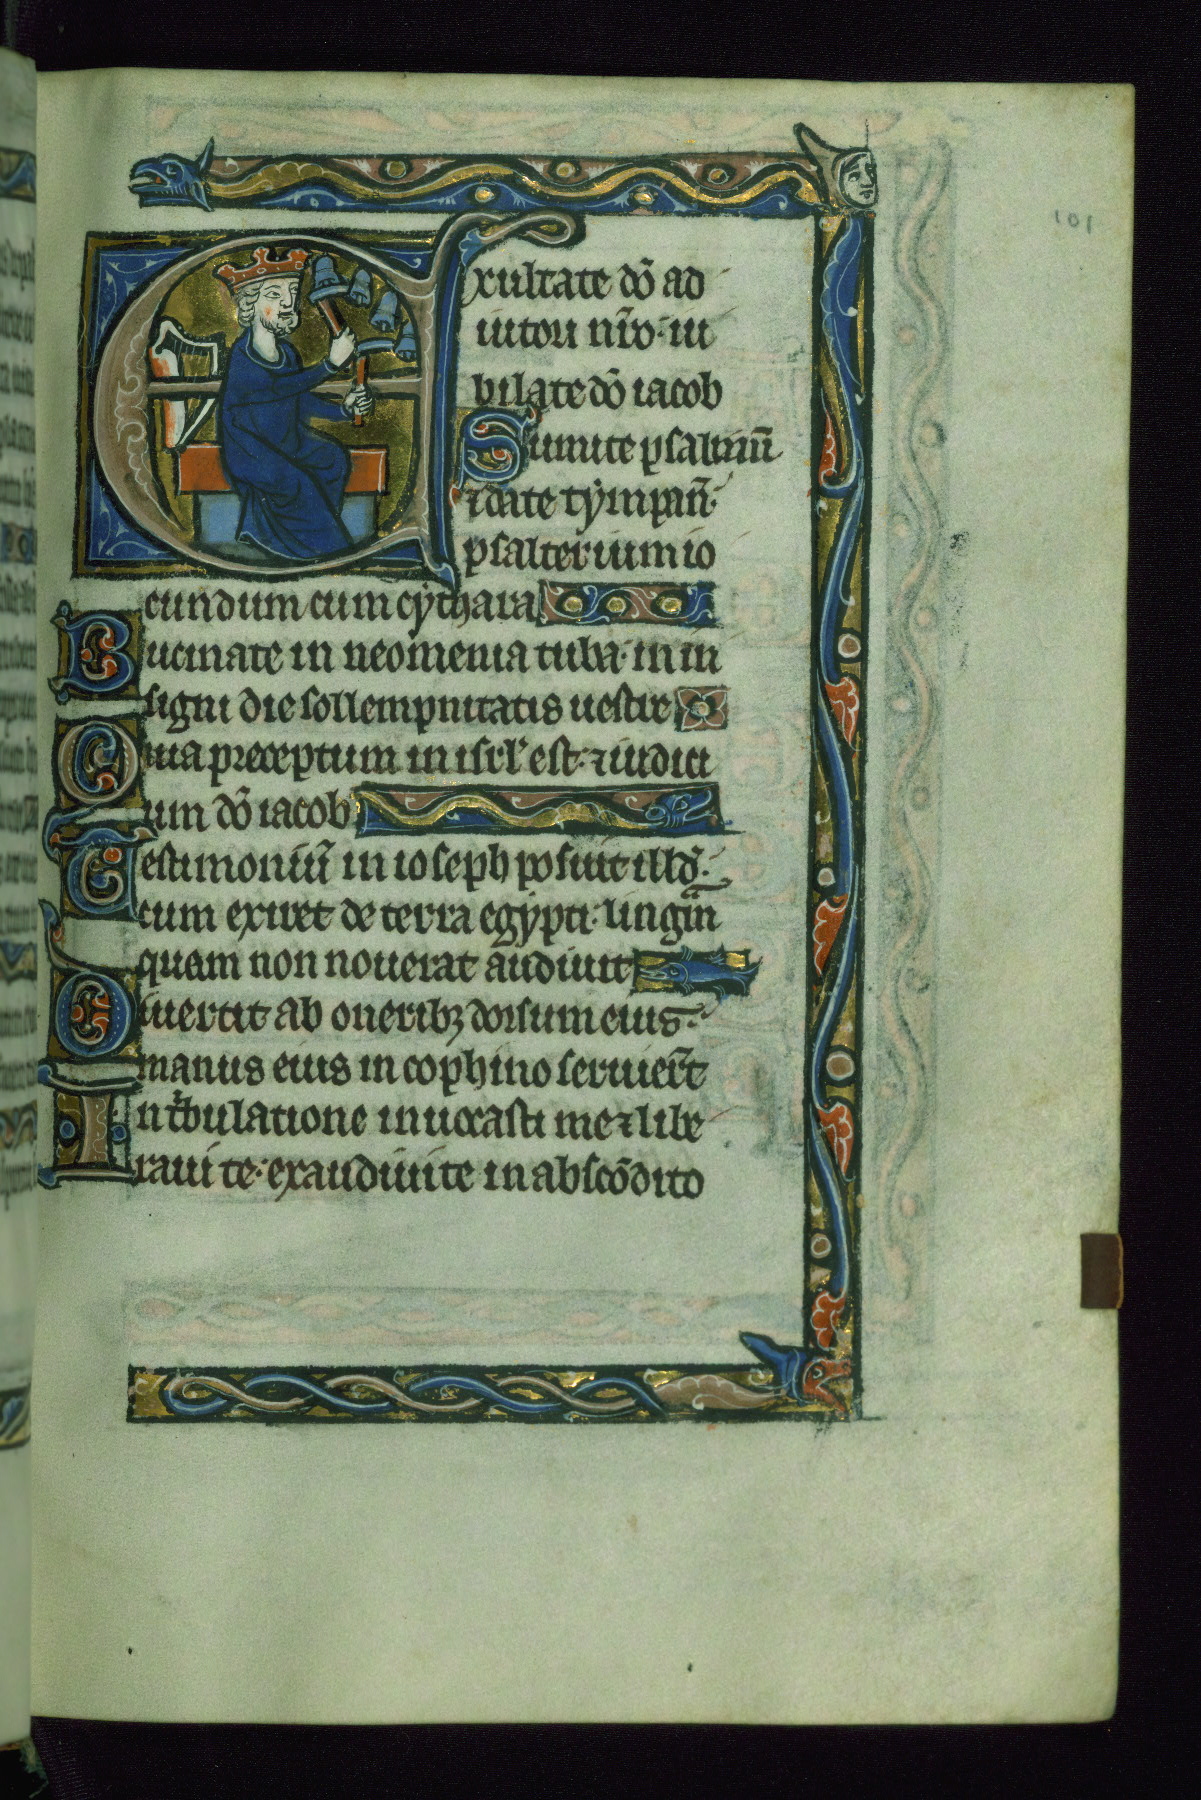 101
Exultate dō ad
iutori nr̄o· iu
bilate dō iacob
Sumite psalmum̄
⁊ date tẏmpan̄·
psalterium io
cundum cum cẏthara
Bucinate in neomenia tuba· in in
signi die sollempnitatis uestre
Quia preceptum in isrl̄ est· ⁊ iudici
um dō iacob
Testimoniū in ioseph posuit illđ·
cum exiret de terra egẏpti· lingām
quam non nouerat audiuit
Diuertit ab oneribꝫ dorsum eius·
manus eius in cophino seruier̄t
In tͥbulatione inuocasti me ⁊ libe
raui te· exaudiui te in abscōdito